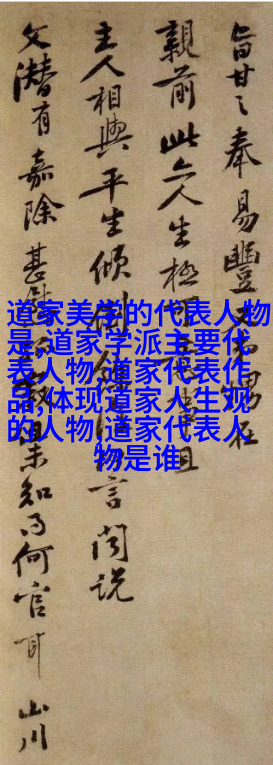 旨甘之奉易豐
偶在
親前此亦人生極
且
主人相與平生傾倒
言闻说
文潜有嘉除甚慰
果知得何官耳 山川
道家美学的代表人物
是,道家学派主要代
表人物,道家代表作
品,体现道家人生观
的人物,道家代表人
物是谁